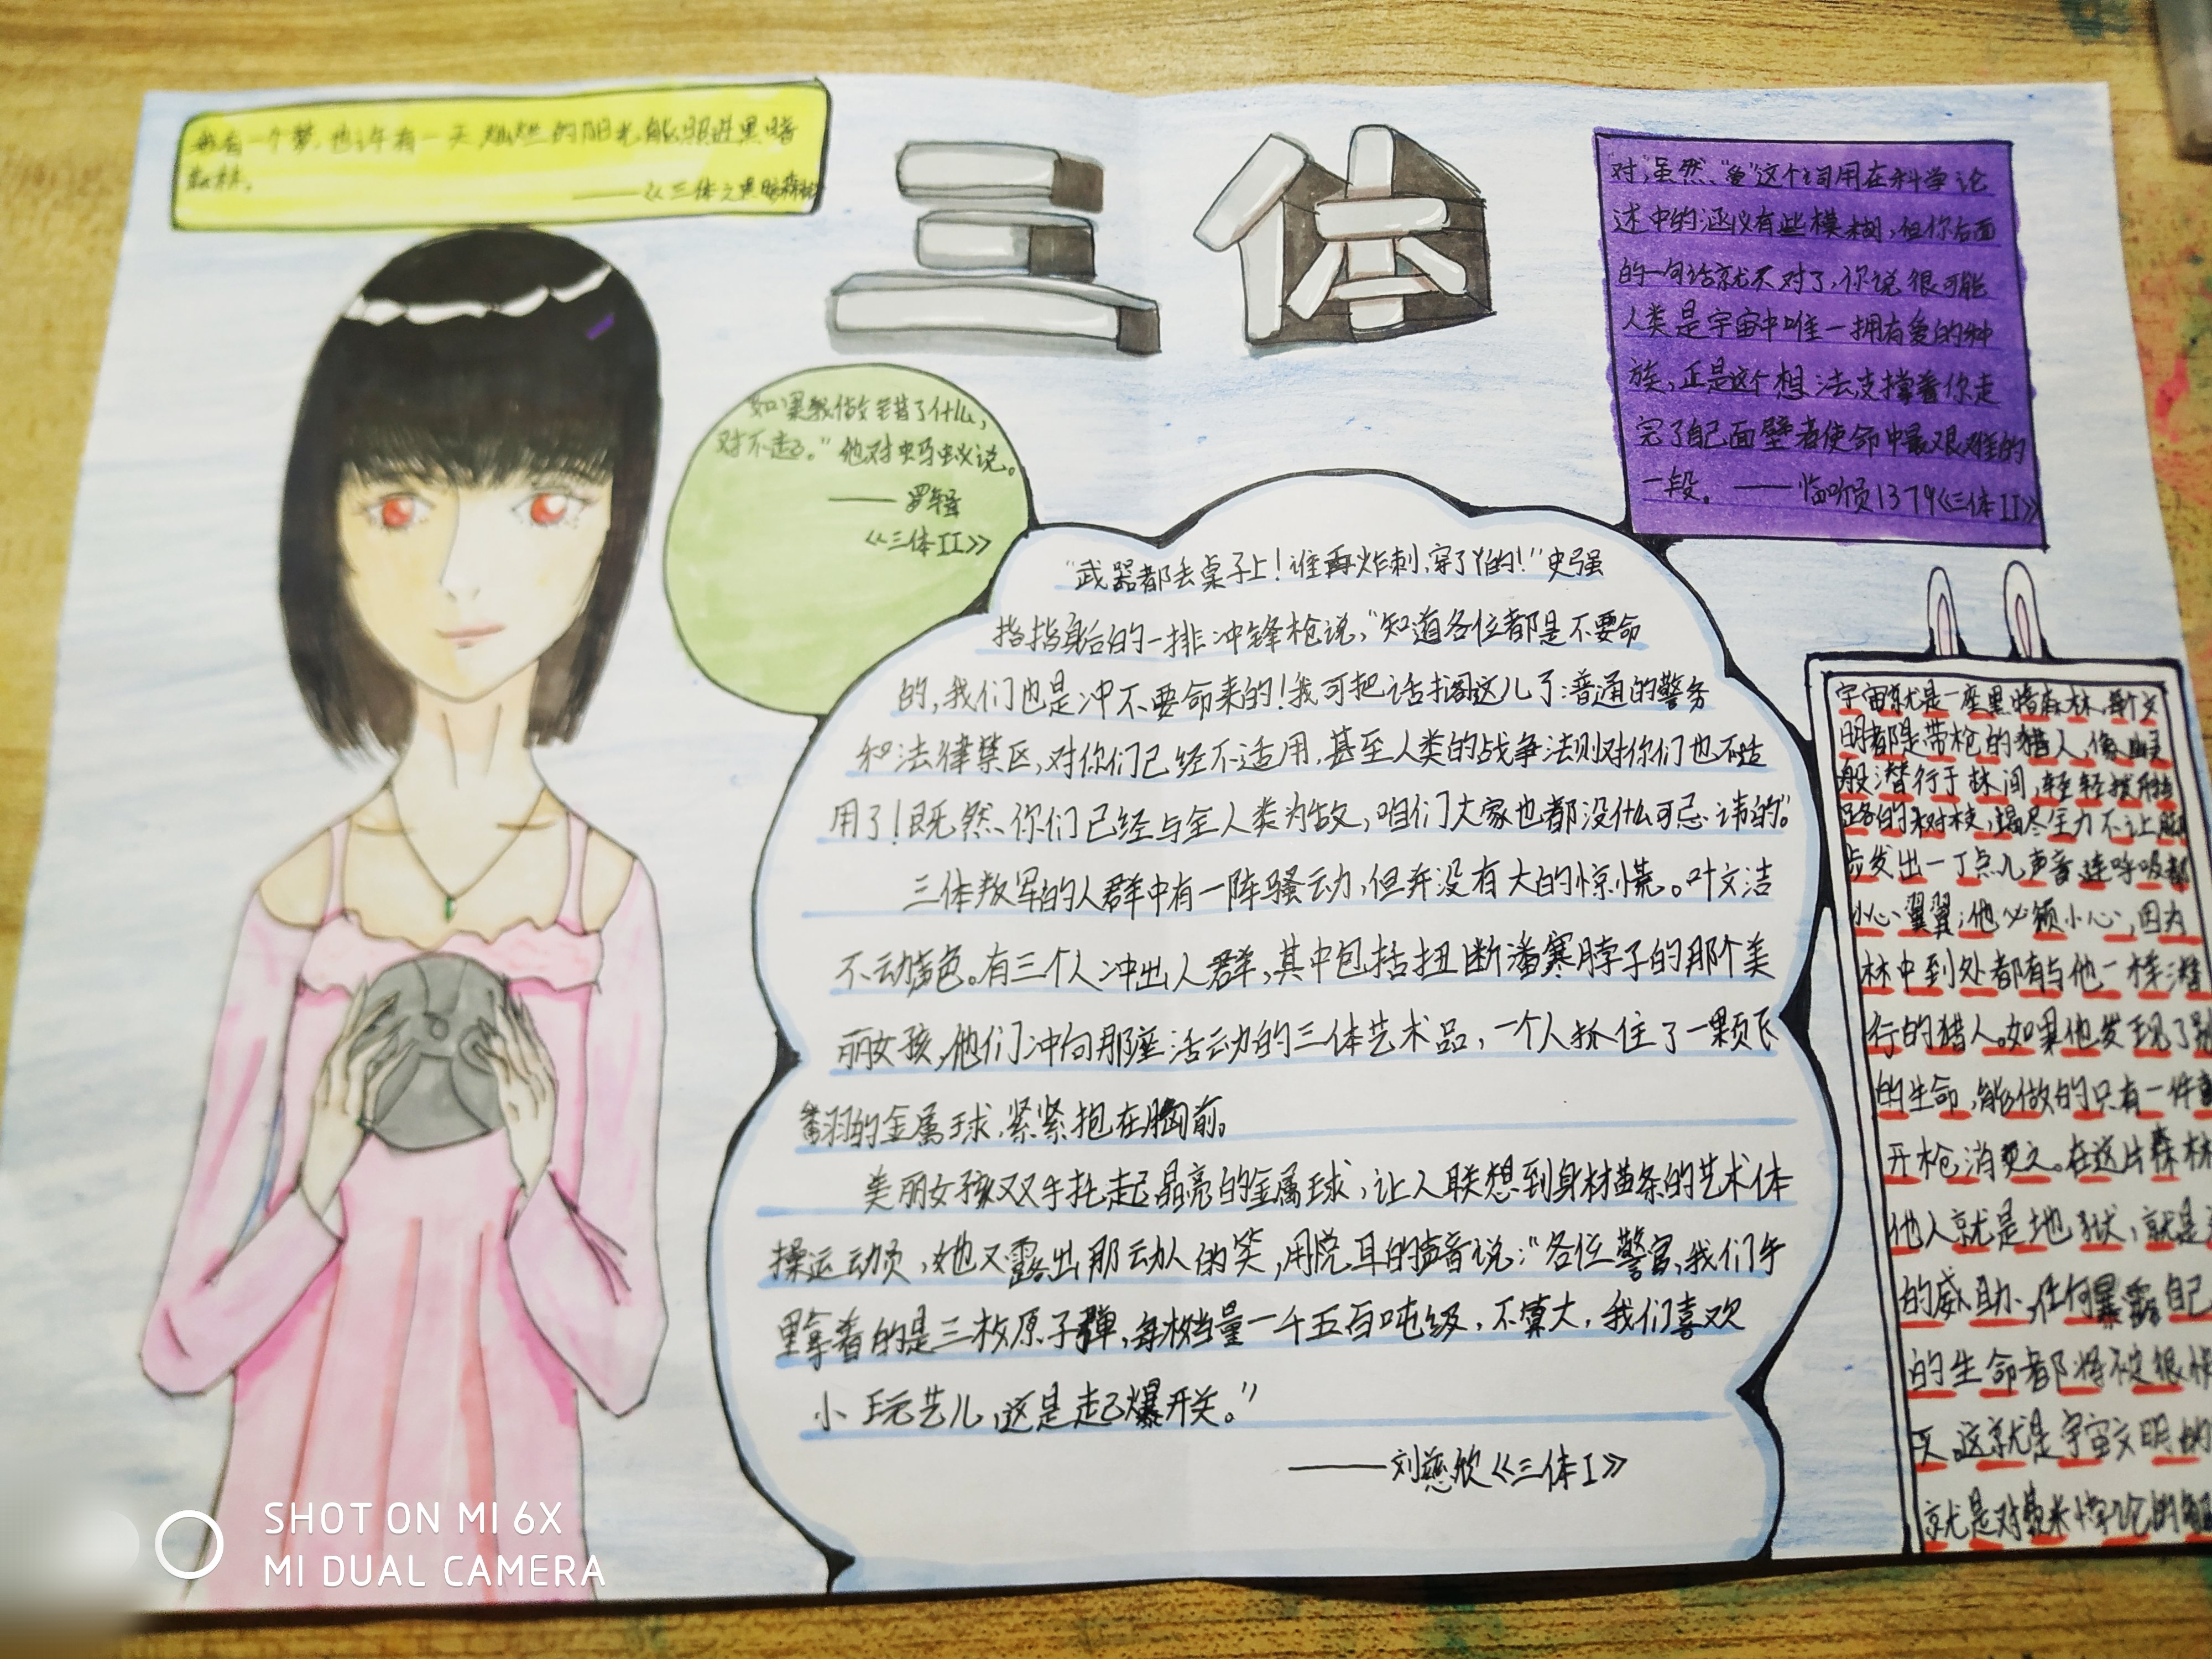 我有一个梦,也许有一天灿烂的阳光能照进黑暗
森林。
——《三体之黑暗森林
三体
"对,虽然"爱"这个词用在科学论
述中的涵义有些模糊,但你后面
的一句话就不对了,你说很可能
人类是宇宙中唯一拥有爱的种
族,正是这个想法,支撑着你走
完了自己面壁者使命中最艰难的
一段。——监听员1379《三体II》
如果我做错了什么,
对不起。"他对蚂蚁说。
——罗辑
《三体II》
"武器都去桌子上!谁再炸刺,穿了丫的!"史强
指指身后的一排冲锋枪说,"知道各位都是不要命
的,我们也是冲不要命来的!我可把话搁这儿了:普通的警务
和法律禁区,对你们已经不适用,甚至人类的战争法则对你们也不适
用了!既然你们已经与全人类为敌,咱们大家也都没什么可忌讳的。"
三体叛军的人群中有一阵骚动,但并没有大的惊慌。叶文洁
不动声色。有三个人冲出人群,其中包括扭断潘寒脖子的那个美
丽女孩,他们冲向那座活动的三体艺术品,一个人抓住了一颗飞
翔的金属球,紧紧抱在胸前。
美丽女孩双手托起晶亮的金属球,让人联想到身材苗条的艺术体
操运动员,她又露出那动人的笑,用悦耳的声音说:"各位警官,我们手
里拿着的是三枚原子弹,每枚当量一千五百吨级,不算大,我们喜欢
小玩艺儿,这是起爆开关。"
——刘慈欣《三体I》
宇宙就是一座黑暗森林,每个文
明都是带枪的猎人,像幽灵
般潜行于林间,轻轻拨开挡
路的树枝,竭尽全力不让脚
步发出一丁点儿声音,连呼吸都
小心翼翼;他必须小心,因为
林中到处都有与他一样潜
行的猎人。如果他发现了别
的生命,能做的只有一件事
开枪消灭之。在这片森林
他人就是地狱,就是
的威胁,任何暴露自己
的生命都将被很快
灭。这就是宇宙文明的
就是对费米悖论的
SHOT ON MI 6X
MI DUAL CAMERA